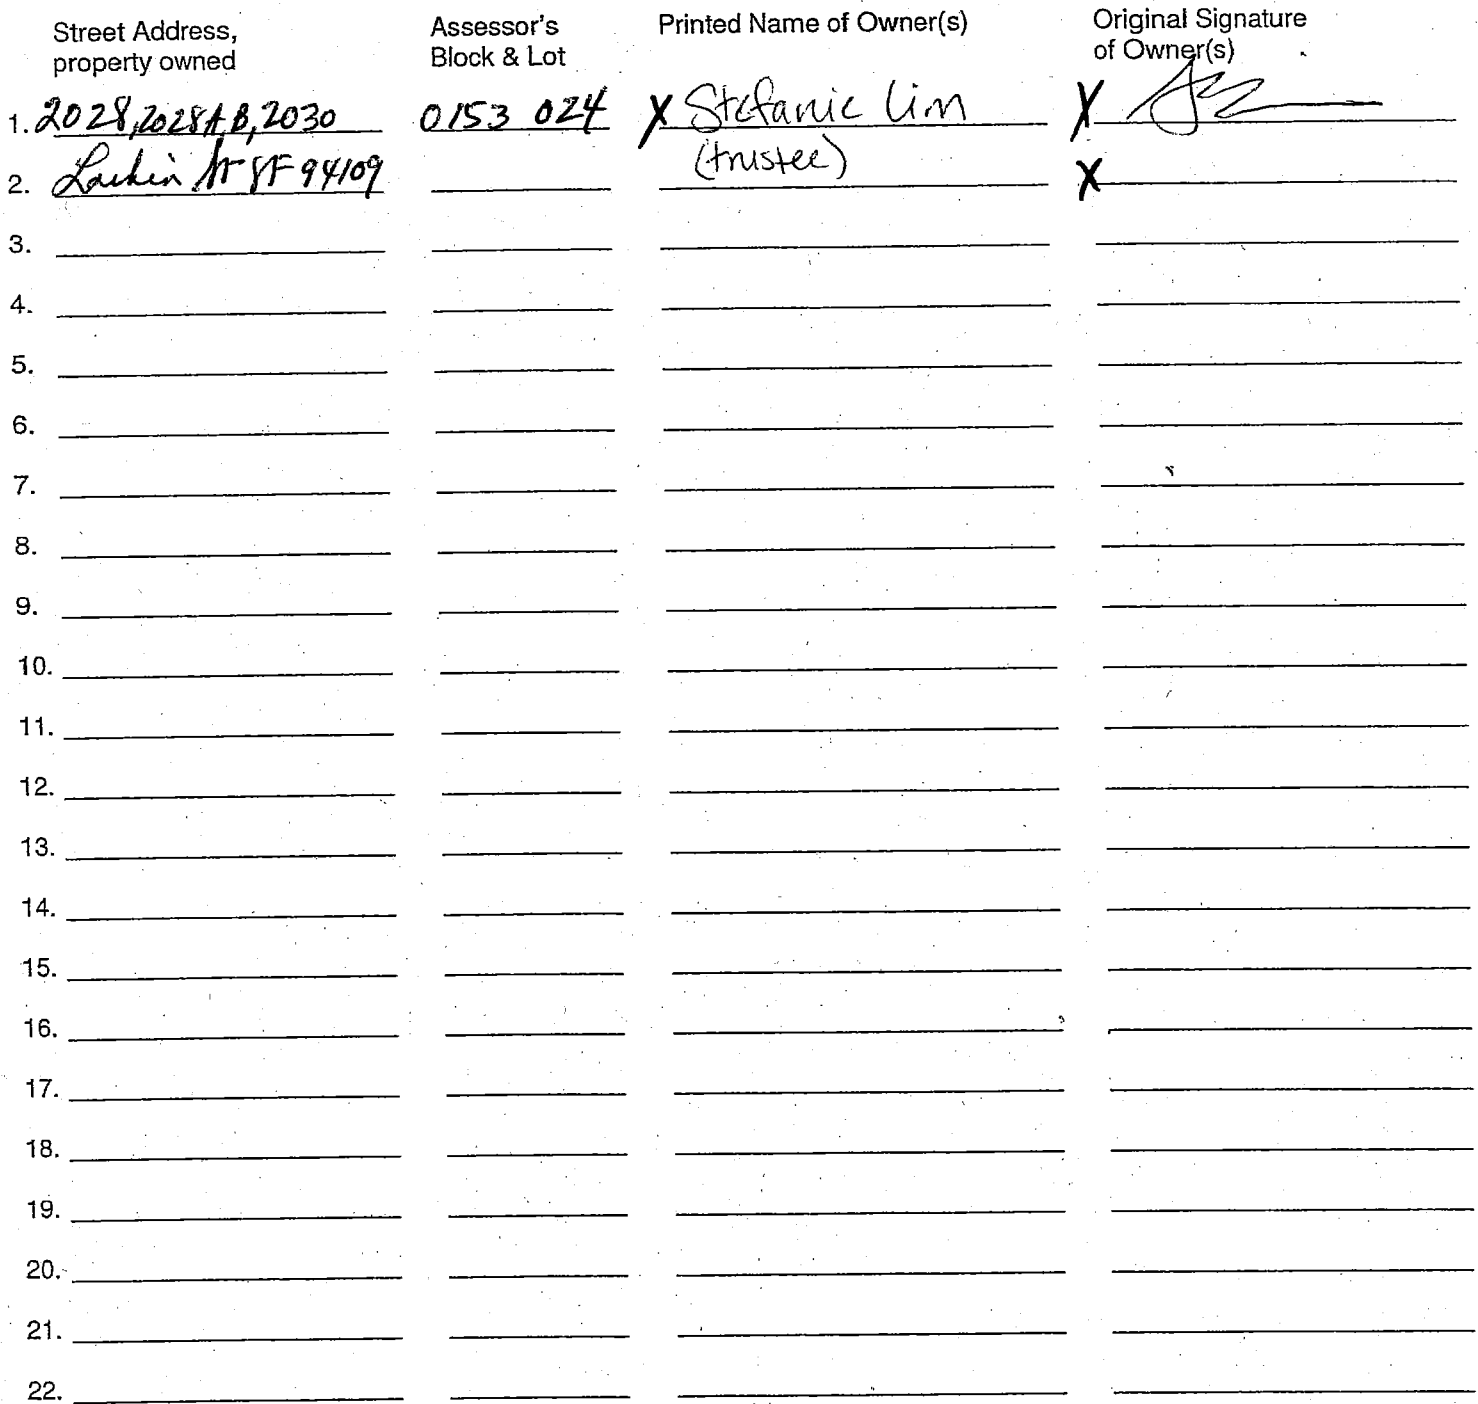 Street Address, property owned Assessor's Block & Lot Printed Name of Owner(s) Original Signature of Owner(s)
1. 2028, 2028 A B, 2030 0153 024 X Stefanie Lim X
2. Larkin St SF 94109 (trustee) X
3.
4.
5.
6.
7.
8.
9.
10.
11.
12.
13.
14.
15.
16.
17.
18.
19.
20.
21.
22.